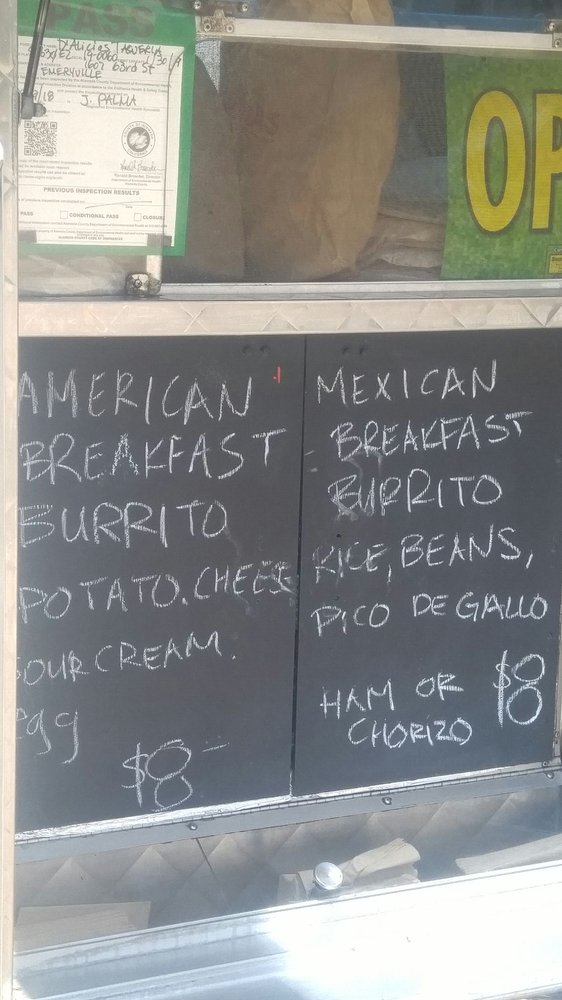 PASS
Emeryville
J. PALMA
PREVIOUS INSPECTION RESULTS
PASS CONDITIONAL PASS CLOSU
OP
AMERICAN
BREAKFAST
BURRITO
POTATO. CHEESE
SOUR CREAM.
egg
$8-
MEXICAN
BREAKFAST
BURRITO
RICE, BEANS,
PICO DE GALLO
HAM OR
CHORIZO
$8